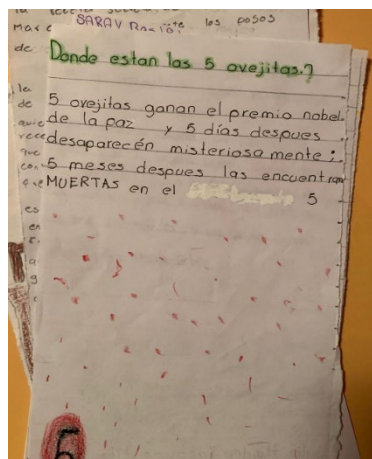 SARAV
los posos
de
Donde estan las 5 ovejitas.?
5 ovejitas ganan el premio nobel.
de la paz y 5 días despues
desaparecén misteriosamente;
5 meses despues las encuentran
MUERTAS en el
5
5